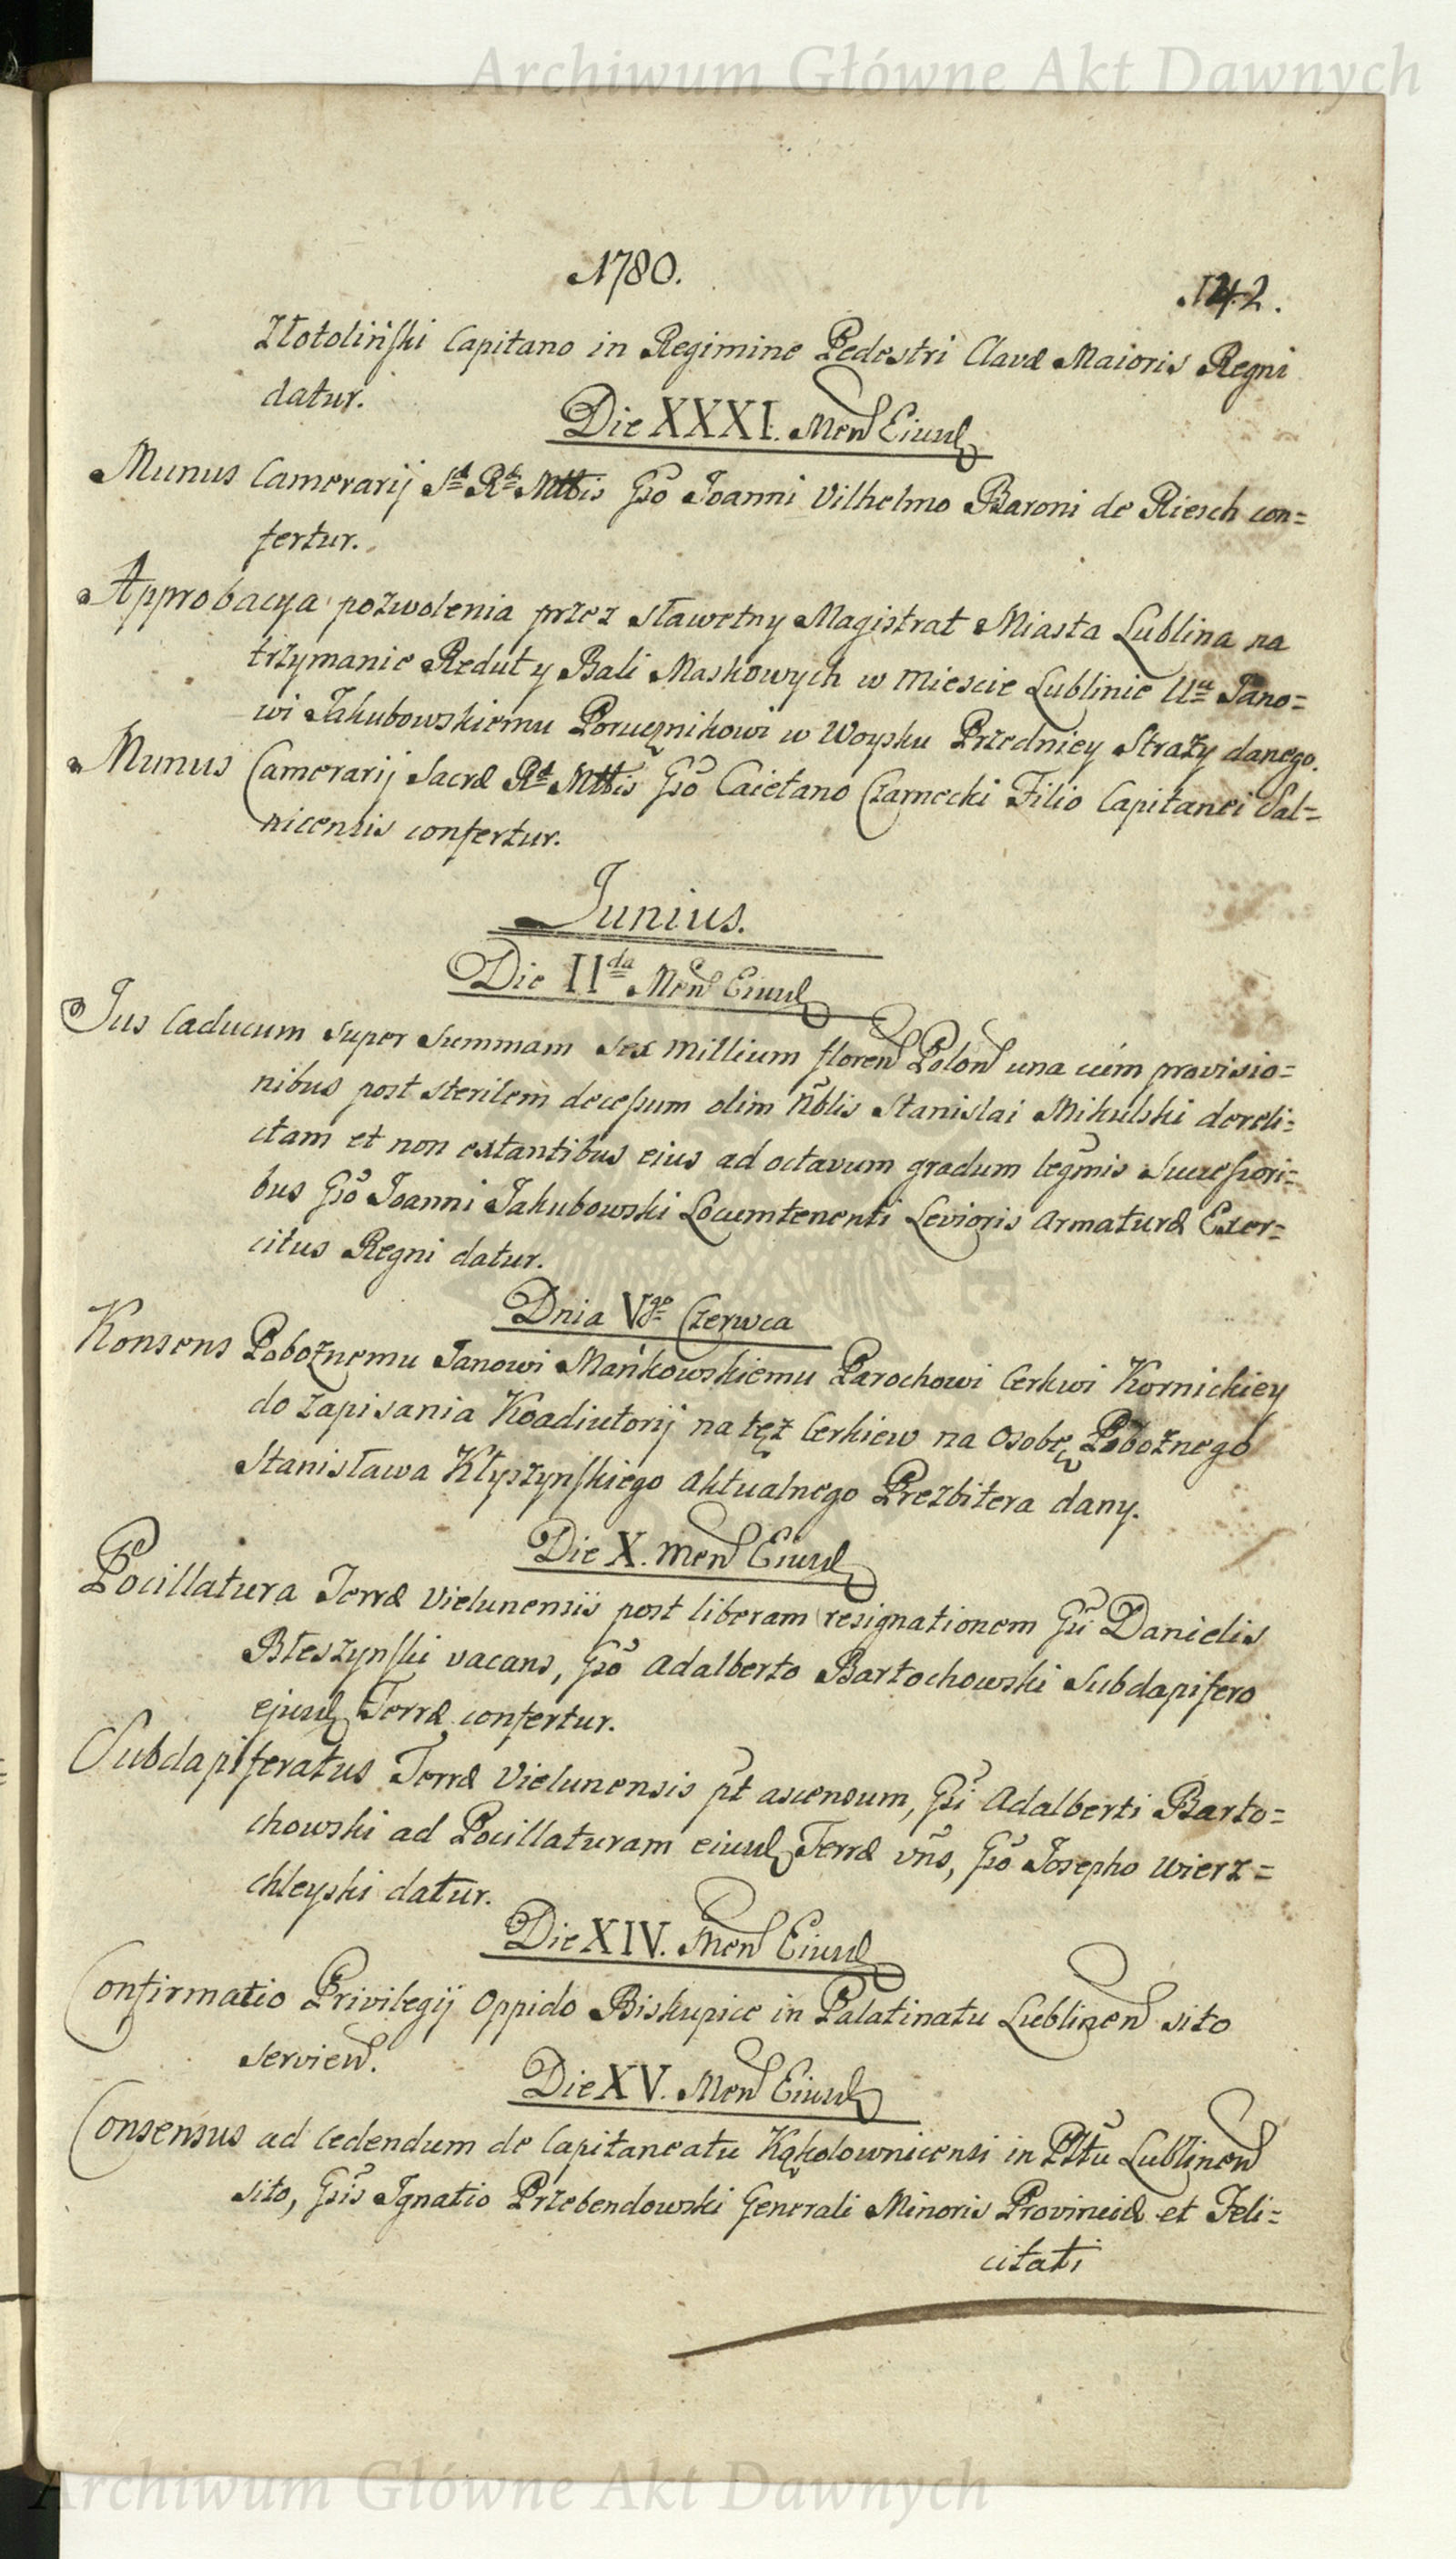 Archiwum Główne Akt Dawnych
1780.
142.
Złotoliński Capitano in Regimine Pedestri Clavæ Maioris Regni
datur.
Die XXXI. Men Eiusd
Munus Camerarij S R Mttis Gso Joanni Vilhelmo Baroni de Riesch con=
fertur.
Approbacya pozwolenia przez sławetny Magistrat Miasta Lublina na
trzymanie Reduty Bali Maskowych w Mieście Lublinie Ur Jano=
wi Jakubowskiemu Porucznikowi w Woysku Przedniey Straży danego.
Munus Camerarij Sacræ R Mttis Gso Caietano Czarnecki Filio Capitanei Sal=
nicensis confertur.
Junius.
Die IIda Men Eiusd
Jus Caducum super summam sex millium floren Polon una cum provisio=
nibus post sterilem decessum olim Nblis Stanislai Mikulski dereli=
ctam et non extantibus eius ad octavum gradum legmis Successori=
bus Gso Joanni Jakubowski Locumtenenti Levioris Armaturæ Exer=
citus Regni datur.
Dnia Vgo Czerwca
Konsens Pobożnemu Janowi Mańkowskiemu Parochowi Cerkwi Kornickiey
do zapisania Koadiutorij na tęż Cerkiew na osobę Pobożnego
Stanisława Kłyszyńskiego aktualnego Prezbitera dany.
Die X. Men Eiusd
Pocillatura Terræ Vielunensis post liberam resignationem Gsi Danielis
Błeszyński vacans, Gso Adalberto Bartochowski Subdapifero
ejusd Terræ confertur.
Subdapiferatus Terræ Vielunensis pt ascensum, Gsi Adalberti Barto=
chowski ad Pocillaturam eiusd Terræ vns, Gso Josepho Wierz=
chleyski datur.
Die XIV. Men Eiusd
Confirmatio Privilegij Oppido Biskupice in Palatinatu Lublinen sito
servien.
Die XV. Men Eiusd
Consensus ad cedendum de Capitaneatu Kąkolownicensi in Pltu Lublinen
sito, Gsis Ignatio Przebendowski Generali Minoris Provinciæ et Feli=
citati
Archiwum Główne Akt Dawnych